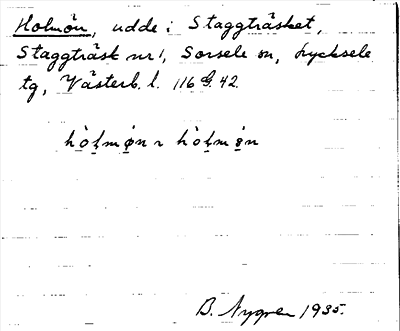 Holmön, udde i Staggträsket,
Staggträsk nr 1, Sorsele sn, Lycksele
tg, Västerb. l. 116 G. 42.
hòlmøn ~ hòlmən
B. Nygren 1935.